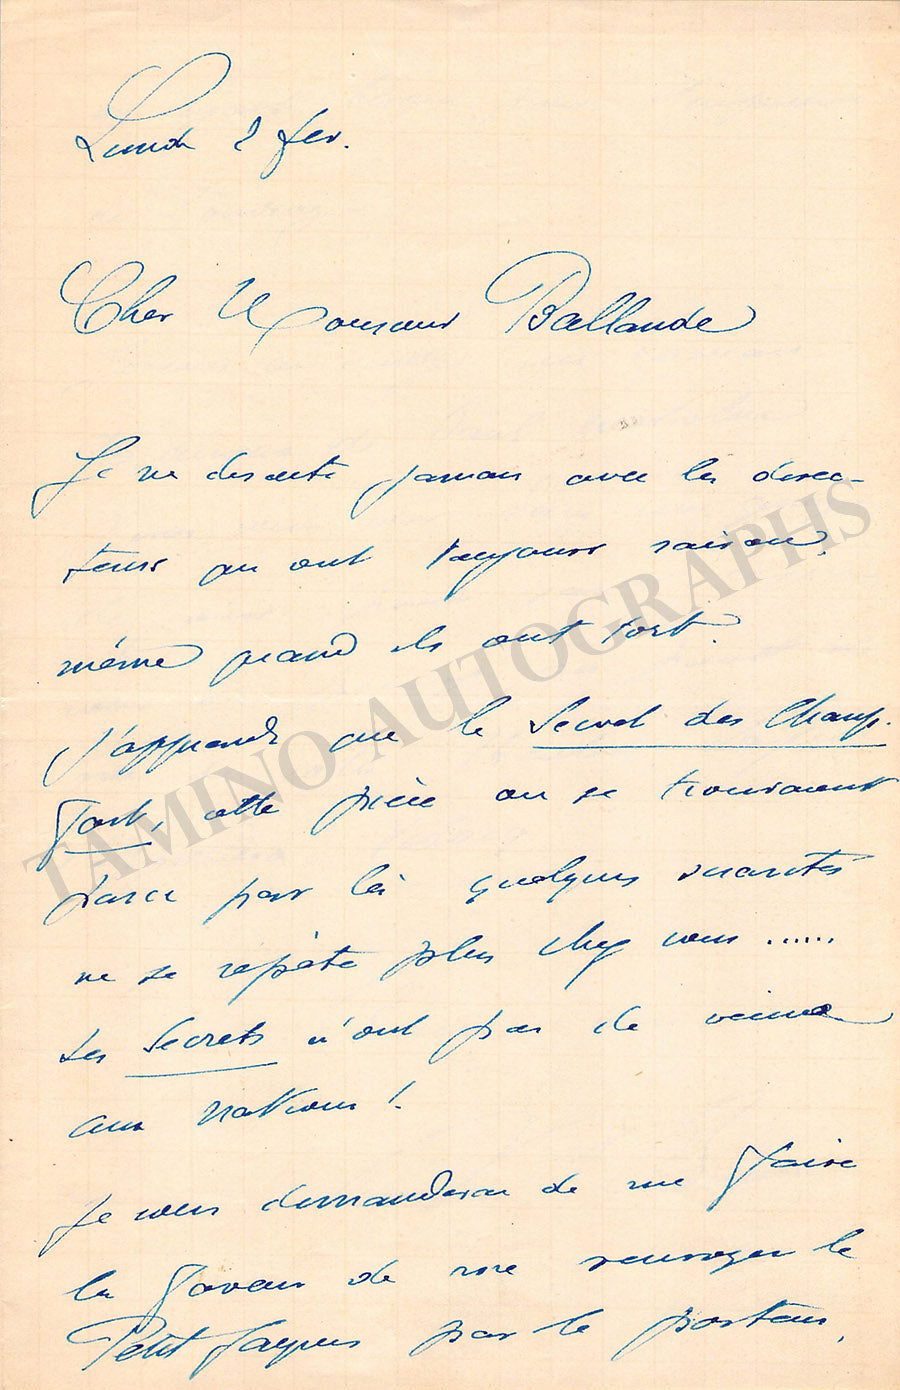 Lundi 2 fev.
Cher Monsieur Ballande
Je ne discute jamais avec les direc-
teurs qui ont toujours raison,
même quand ils ont tort.
J'apprends que le Secret des Champ.
fort, cette pièce où se trouvaient
parci par là quelques
ne se répète plus chez vous ......
Les Secrets n'ont pas de veine
aux Nations!
Je vous demanderai de me faire
la faveur de me renvoyer le
Petit Jacques par le porteur,
TAMINO AUTOGRAPHS